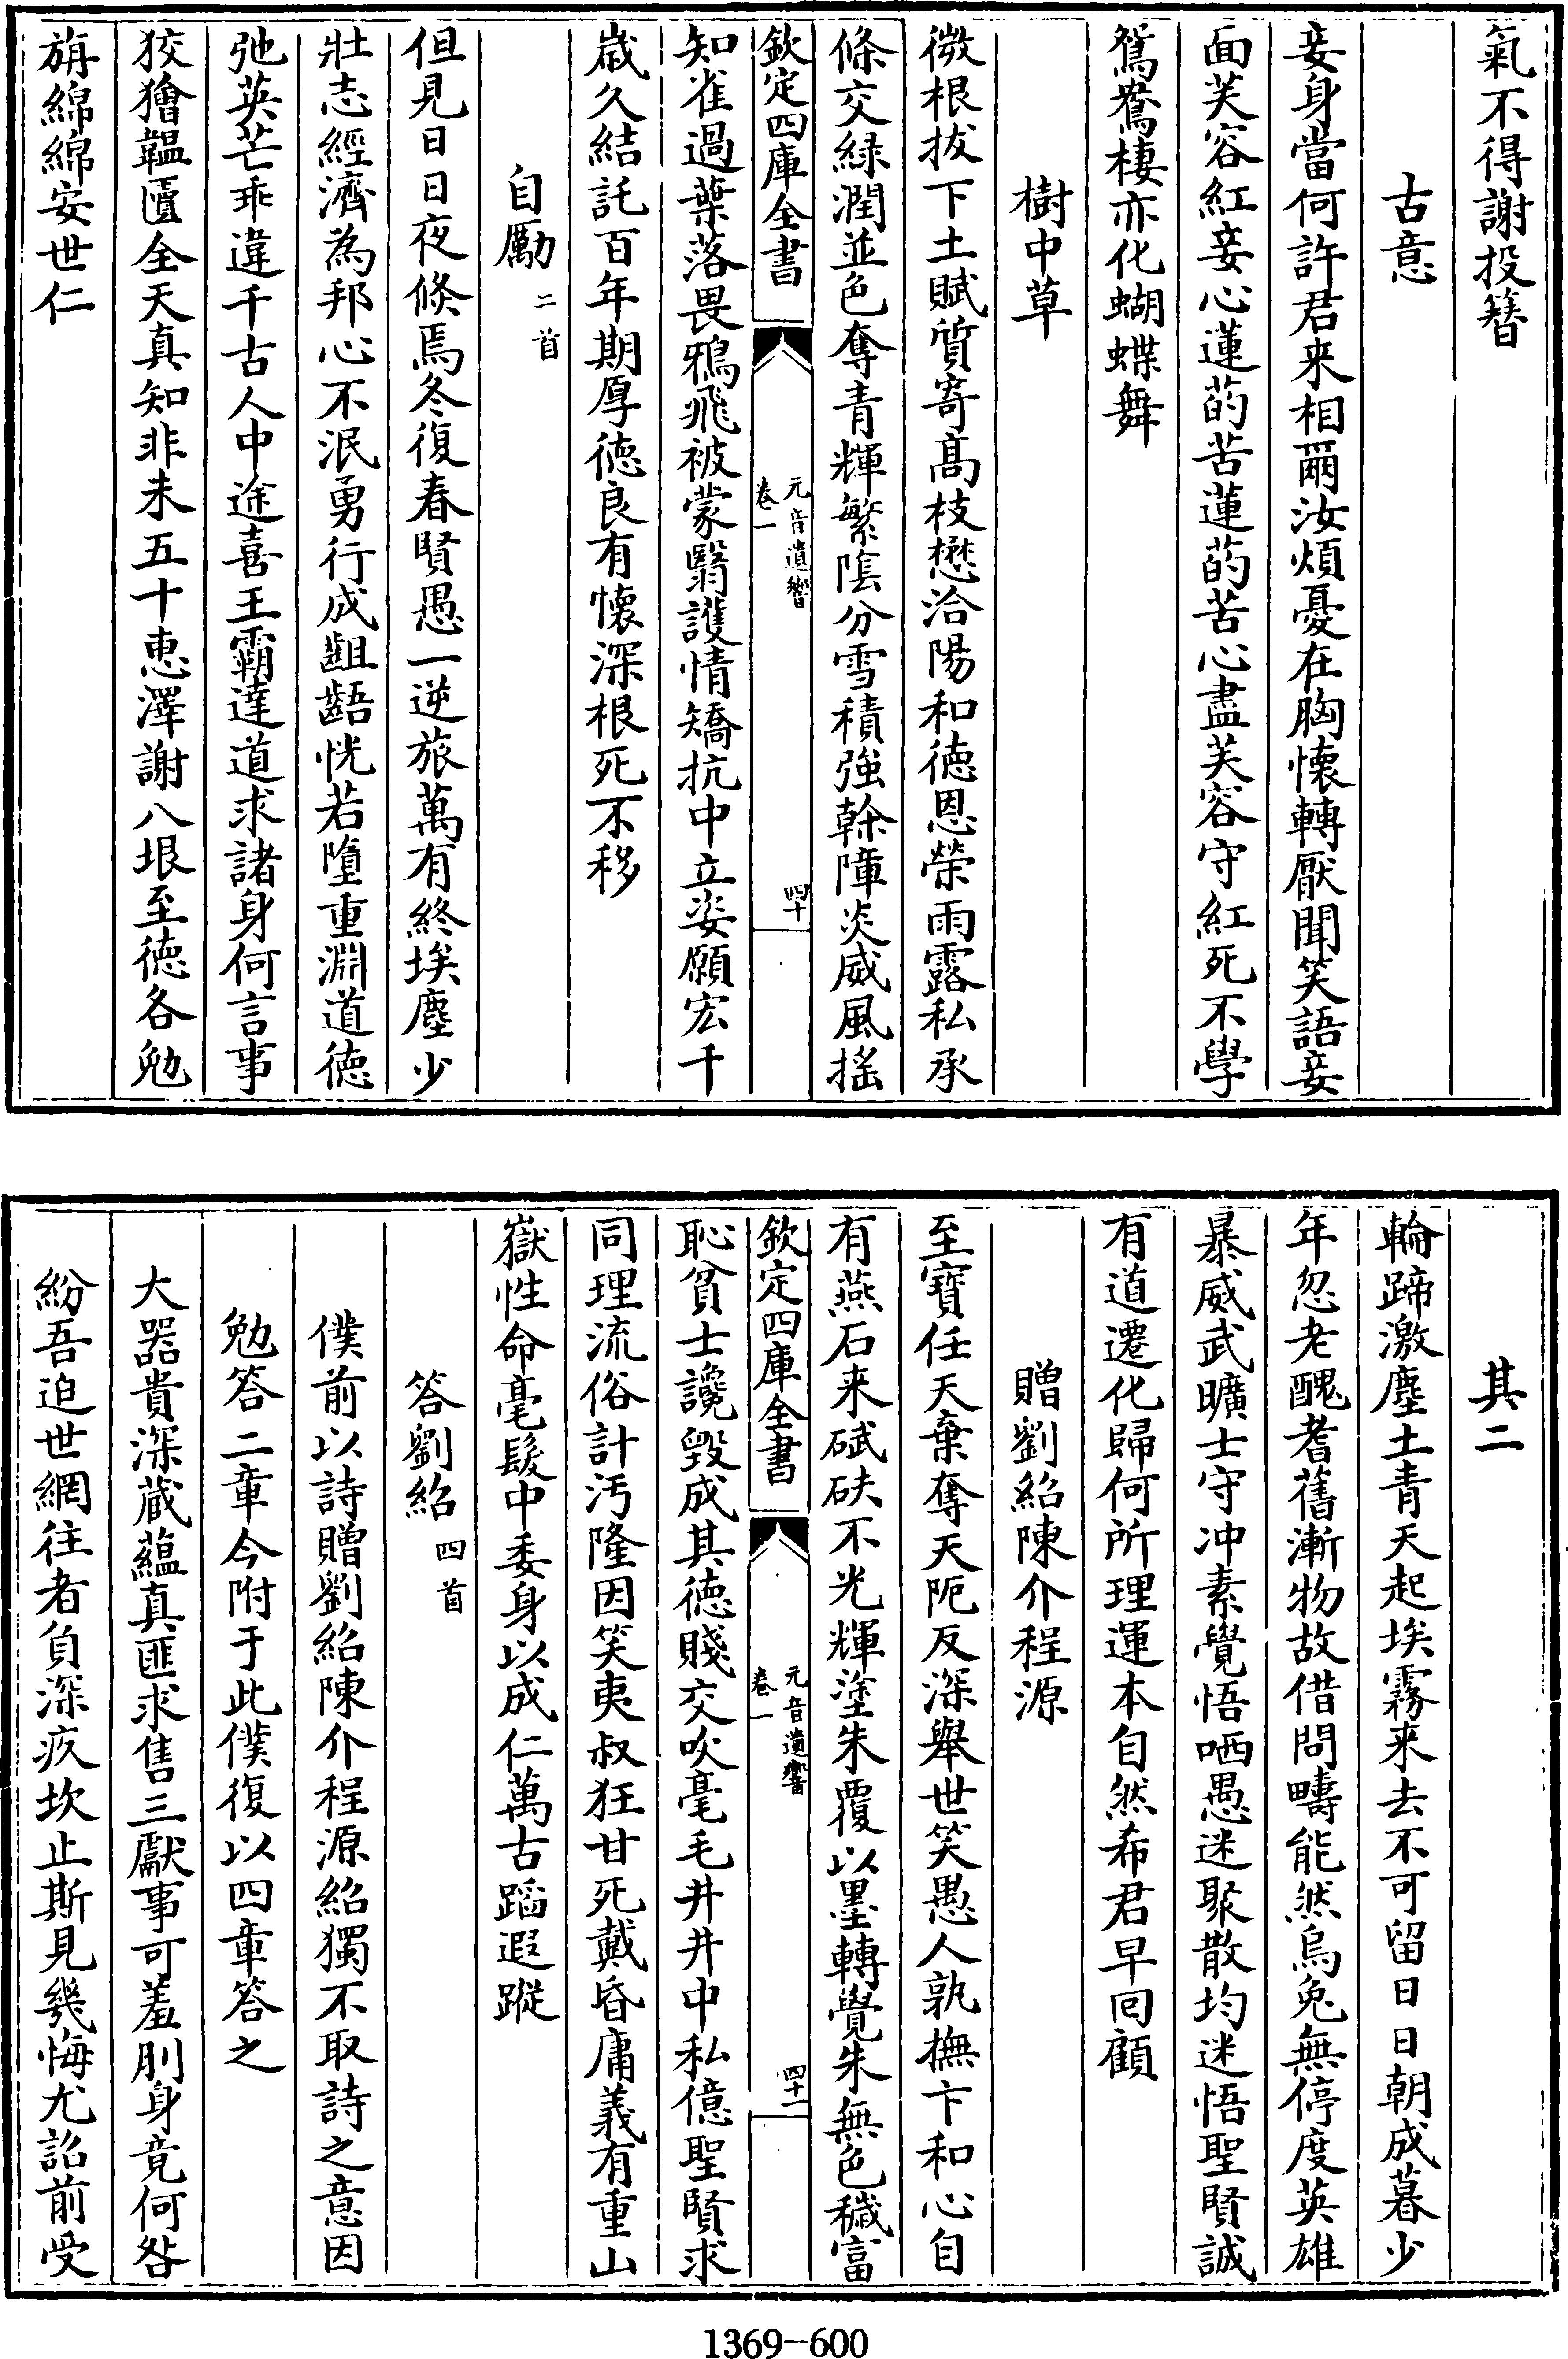 氣不得謝投簮
古意
妾身當何許君来相爾汝煩憂在胸懷轉厭聞笑語妾
面芙容紅妾心蓮菂苦蓮菂苦心盡芙容守紅死不學
鴛鴦棲亦化蝴蝶舞
樹中草
微根拔下土賦質寄髙枝懋洽陽和徳恩榮雨露私承
條交緑潤並色奪青輝繁隂分雪積強榦障炎威風揺
欽定四庫全書
元音遺響
卷一
四十
知雀過葉落畏鴉飛被蒙翳護情矯抗中立姿願宏千
嵗久結託百年期厚徳良有懷深根死不移
自勵二首
但見日日夜倐焉冬復春賢愚一逆旅萬有終埃塵少
壯志經濟為邦心不泯勇行成齟齬恍若墮重淵道徳
弛英芒乖違千古人中途喜王霸達道求諸身何言事
狡獪韞匵全天真知非未五十恵澤謝八垠至徳各勉
旃綿綿安世仁
其二
輪蹄激塵土青天起埃霧来去不可留日日朝成暮少
年忽老醜耆舊漸物故借問疇能然烏兔無停度英雄
暴威武曠士守冲素覺悟哂愚迷聚散均迷悟聖賢誠
有道遷化歸何所理運本自然希君早囘顧
贈劉紹陳介程源
至寳任天棄奪天阨反深舉世笑愚人孰撫卞和心自
有燕石来碔砆不光輝塗朱覆以墨轉覺朱無色穢富
欽定四庫全書
元音遺響
卷一
四十一
恥貧士讒毀成其徳賤交吹毫毛井井中私億聖賢求
同理流俗計汚隆因笑夷叔狂甘死戴昏庸義有重山
嶽性命毫髮中委身以成仁萬古蹈遐蹤
答劉紹四首
僕前以詩贈劉紹陳介程源紹獨不取詩之意因
勉答二章今附于此僕復以四章答之
大器貴深蔵藴真匪求售三獻事可羞刖身竟何咎
紛吾迫世網徃者負深疚坎止斯見㡬悔尤詒前受
1369-600